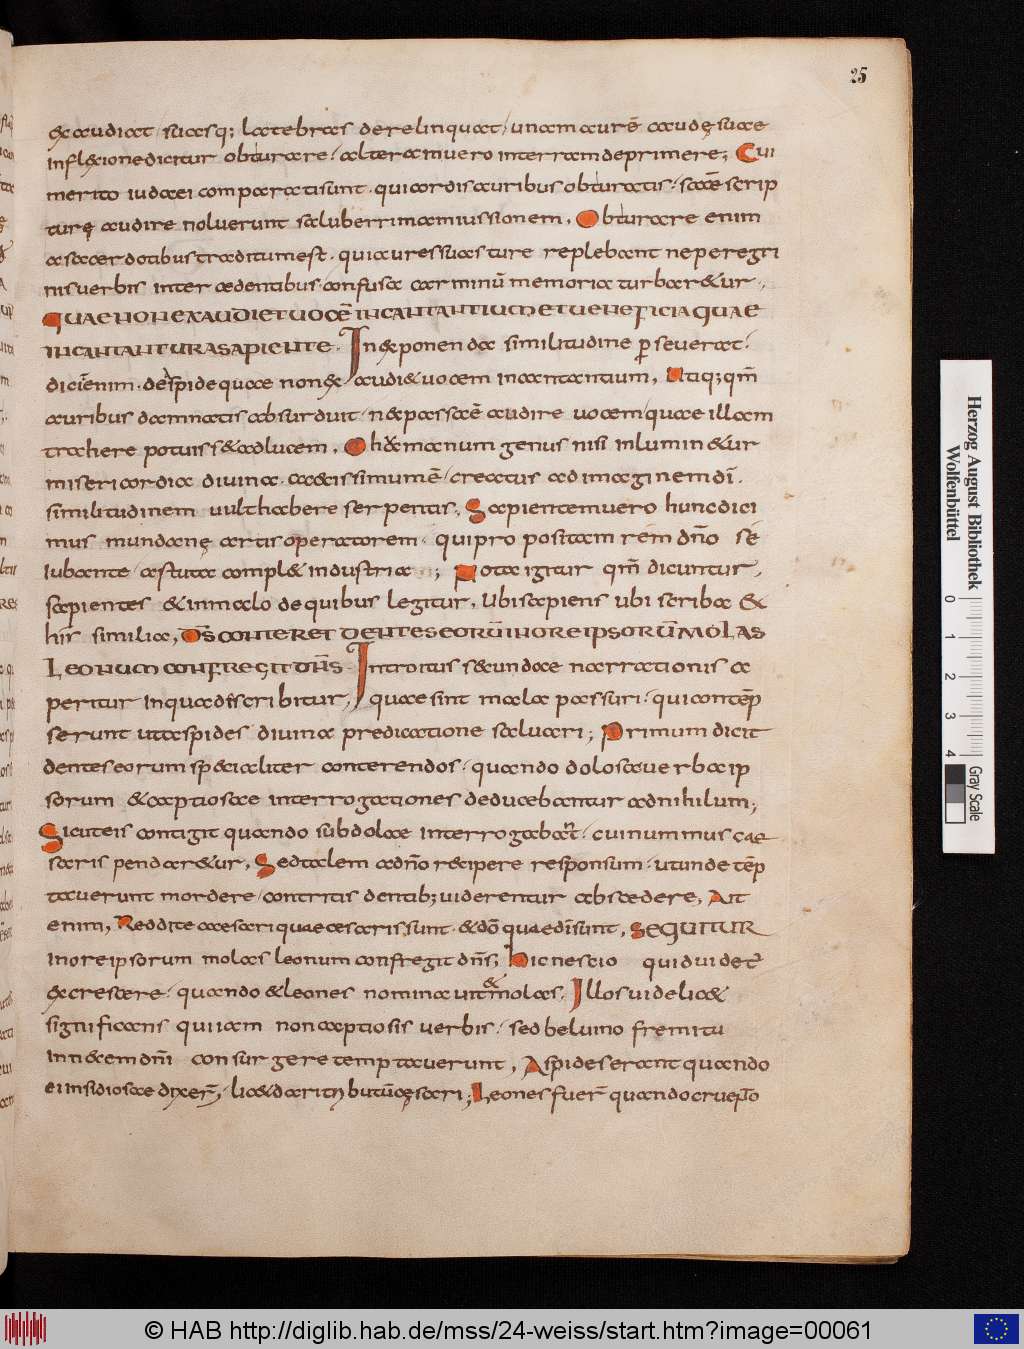 25
exaudiat, suasq; latebras derelinquat, unam aurē caudę suae
inflexione dicitur obturare, altera muero interram deprimere; Cui
merito iudaei comparati sunt. qui cordis auribus obturatis, sacrae scrip
turę audire noluerunt saluberrimam iussionem. Obturare enim
a sacerdotibus traditum est. qui aures suas ture replebant ne peregri
nis uerbis inter cedentibus, confusa carminū memoria turbaretur.
QUAE NON EXAUDIET UOCĒ INCANTANTIUM ET UENEFICIA QUAE
INCANTANTUR A SAPIENTE. In exponenda similitudine pseuerat.
dicit enim. de aspide quae non exaudiet uocem incantantium. Utiq; qm̄
auribus damnatis absurduit. ne passē audire uocem, quae illam
trahere potuisset ad lucem. O humanum genus nisi inluminetur
misericordia diuina. caecissimum ē, creatus ad imaginem dī.
similitudinem uult habere serpentis. Sapientem uero hunc dici
mus mundanę artis operatorem. qui propositam rem dn̄o se
iubante, astuta complet industria; Nota igitur qm̄ dicuntur,
sapientes & in malo de quibus legitur. Ubi sapiens ubi scriba &
his similia. DS̄ CONTERET DENTES EORŪ IN ORE IPSORŪ MOLAS
LEONUM CONFREGIT DN̄S. Introitus secundae narrationis a
peritur in qua describitur, quae sint mala passuri, qui contēp
serunt ut aspides diuina predicatione saluari; Primum dicit
dentes eorum specialiter conterendos, quando dolosa uerba ip
sorum & captiosae interrogationes deducebantur ad nihilum;
Sicut eis contigit quando subdolae interrogabant. cui nummus cae
saris pendaretur. Sed talem a dn̄o recipere responsum. ut unde tēp
tauerunt mordere, contritis dentib; uiderentur abscedere. Ait
enim, Reddite caesari quae caesaris sunt. & dō quae dī sunt. SEQUITUR
In ore ipsorum molas leonum confregit dn̄s; Hic nescio quid uidet̄
excrescere, quando & leones nominauit & molas. Illos uidelicet
significans qui iam non captiosis uerbis, sed beluino fremitu
in necem dn̄i consurgere temptauerunt. Aspides erant quando
ei insidiosae dixer̄, licet dari tributū caesari; Leones fuer̄ quando cruento
Herzog August Bibliothek
Wolfenbüttel
0 1 2 3 4
Gray Scale
© HAB http://diglib.hab.de/mss/24-weiss/start.htm?image=00061